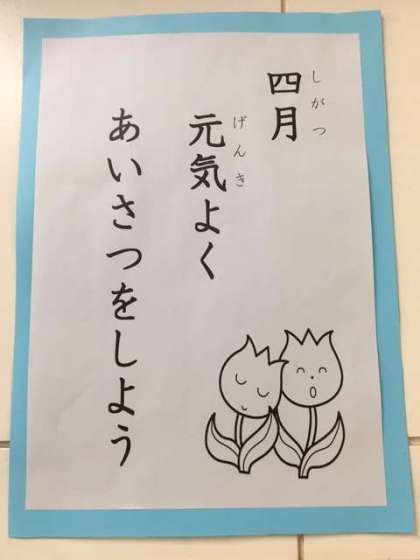 四月
しがつ
元気よく
げんき
あいさつをしよう